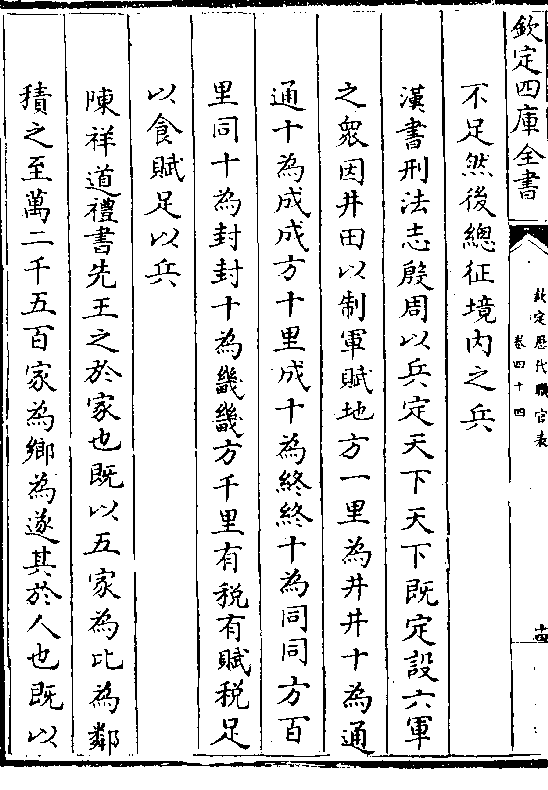 欽定四庫全書
欽定歷代職官表
卷四十四
十四
不足然後總征境内之兵
漢書刑法志殷周以兵定天下天下既定設六軍
之衆因井田以制軍賦地方一里為井井十為通
通十為成成方十里成十為終終十為同同方百
里同十為封封十為畿畿方千里有税有賦税足
以食賦足以兵
陳祥道禮書先王之於家也既以五家為比為鄰
積之至萬二千五百家為鄉為遂其於人也既以